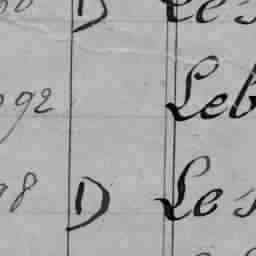 D Les
92 Leb
98 D Les